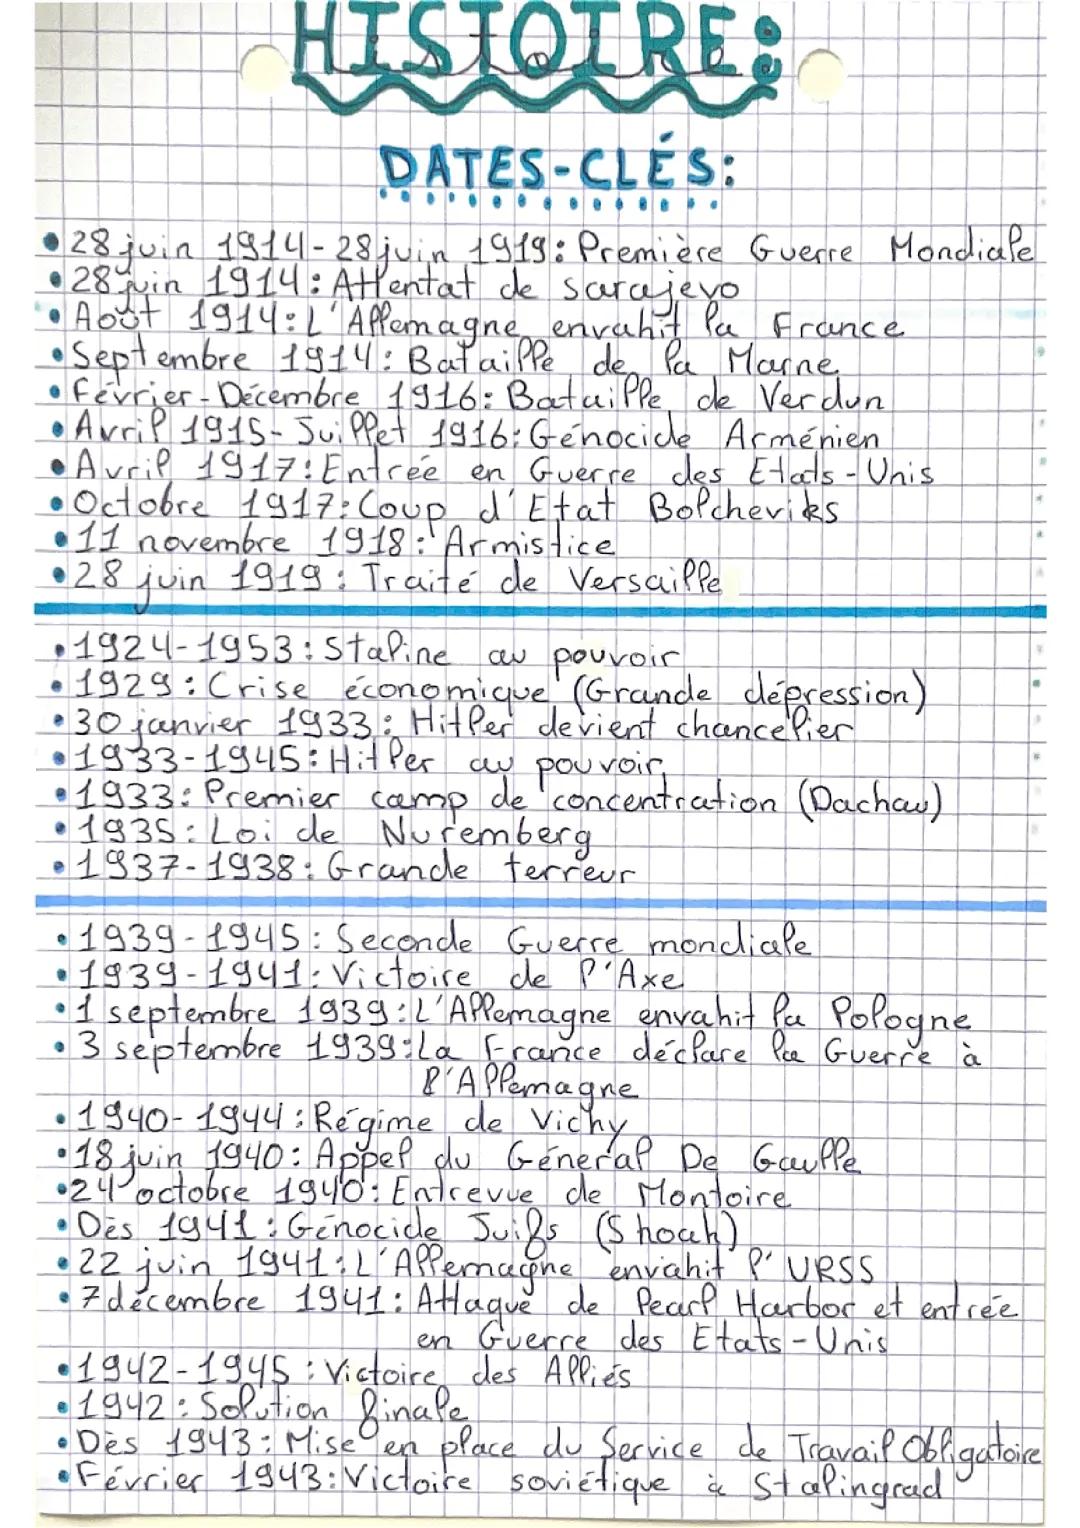 HISTOIRE:
DATES-CLÉS:
• 28 juin 1914-28 juin 1919: Première Guerre Mondiale
• 28 juin 1914: Attentat de Sarajevo
• Août 1914: L'Allemagne envahit la France
• Septembre 1914: Bataille de la Marne
• Février-Décembre 1916: Bataille de Verdun
• Avril 1915-Juillet 1916: Génocide Arménien
• Avril 1917: Entrée en Guerre des Etats-Unis
• Octobre 1917: Coup d'Etat Bolcheviks
• 11 novembre 1918: Armistice
• 28 juin 1919: Traité de Versaille
• 1924-1953: Staline au pouvoir
• 1929: Crise économique (Grande dépression)
• 30 janvier 1933: Hitler devient chancelier
• 1933-1945: Hitler au pouvoir
• 1933: Premier camp de concentration (Dachau)
• 1935: Loi de Nuremberg
• 1937-1938: Grande terreur
• 1939-1945: Seconde Guerre mondiale
• 1939-1941: Victoire de l'Axe
• 1 septembre 1939: L'Allemagne envahit la Pologne
• 3 septembre 1939: La France déclare la Guerre à
l'Allemagne
• 1940-1944: Régime de Vichy
• 18 juin 1940: Appel du Général De Gaulle
• 24 octobre 1940: Entrevue de Montoire
• Dès 1941: Génocide Juifs (Shoah)
• 22 juin 1941: L'Allemagne envahit l'URSS
• 7 décembre 1941: Attaque de Pearl Harbor et entrée
en Guerre des Etats-Unis
• 1942-1945: Victoire des Alliés
• 1942: Solution finale
• Dès 1943: Mise en place du Service de Travail Obligatoire
• Février 1943: Victoire soviétique à Stalingrad